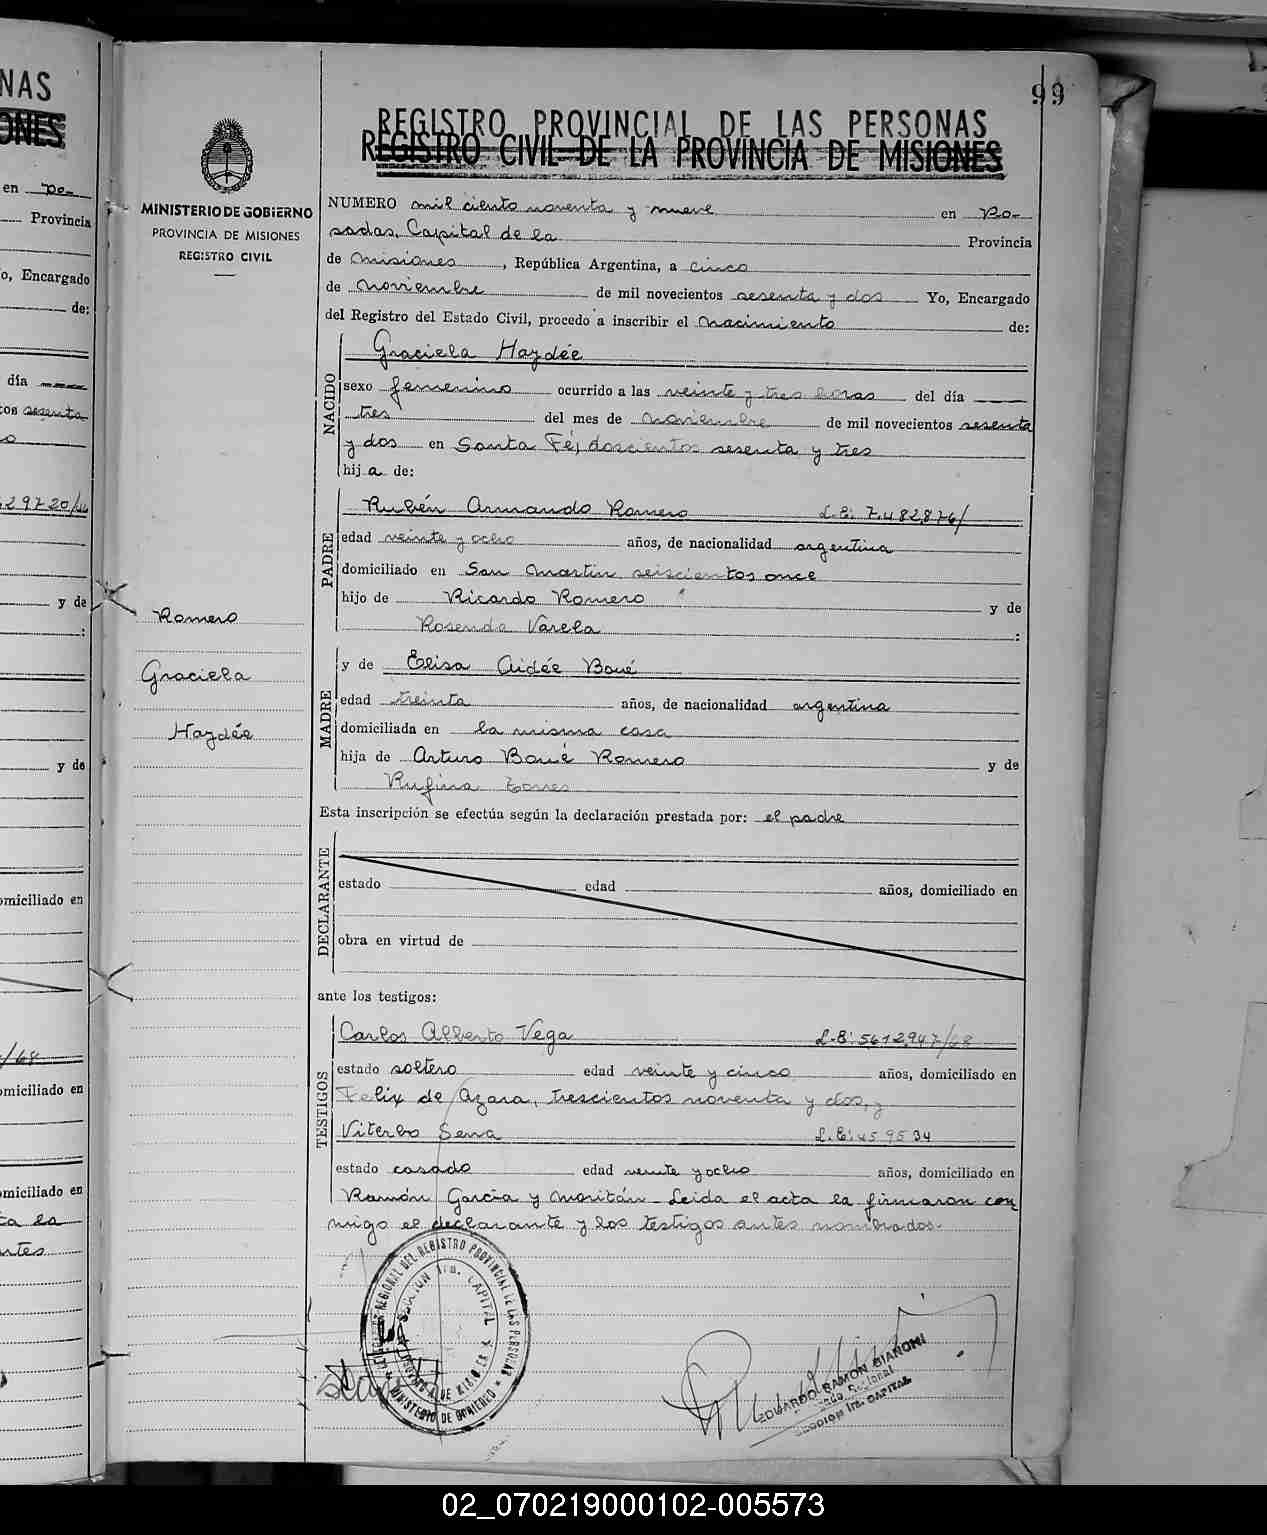 NAS
ONES
en Po-
Provincia
o, Encargado
de:
día
tos sesenta
29720/
y de
:
y de
omiciliado en
/68
omiciliado en
omiciliado en
ta la
ntes
99
REGISTRO PROVINCIAL DE LAS PERSONAS
REGISTRO CIVIL DE LA PROVINCIA DE MISIONES
MINISTERIO DE GOBIERNO
PROVINCIA DE MISIONES
REGISTRO CIVIL
NUMERO mil ciento noventa y nueve en Po-
sadas, Capital de la Provincia
de Misiones, República Argentina, a cinco
de Noviembre de mil novecientos sesenta y dos Yo, Encargado
del Registro del Estado Civil, procedo a inscribir el nacimiento de:
NACIDO
Graciela Haydée
sexo femenino ocurrido a las veinte y tres horas del día
tres del mes de noviembre de mil novecientos sesenta
y dos en Santa Fé, doscientos sesenta y tres
hija de:
PADRE
Rubén Armando Romero L.E: 7.482.876/
edad veinte y ocho años, de nacionalidad argentina
domiciliado en San Martin seiscientos once
hijo de Ricardo Romero y de
Rosenda Varela :
Romero
Graciela
Haydée
MADRE
y de Elisa Aidée Boué
edad treinta años, de nacionalidad argentina
domiciliada en la misma casa
hija de Arturo Boué Romero y de
Rufina Torres
Esta inscripción se efectúa según la declaración prestada por: el padre
DECLARANTE
estado edad años, domiciliado en
obra en virtud de
ante los testigos:
TESTIGOS
Carlos Alberto Vega L.E: 5612947/68
estado soltero edad veinte y cinco años, domiciliado en
Felix de Azara, trescientos noventa y dos, y
Viterbo Sena L.E: 459534
estado casado edad veinte y ocho años, domiciliado en
Ramón García y Maritán - Leida el acta la firmaron con-
migo el declarante y los testigos antes nombrados.
REGIONAL DEL REGISTRO PROVINCIAL DE LAS PERSONAS
SECCION 1ra. CAPITAL
MINISTERIO DE GOBIERNO
EDUARDO RAMON BIANCHI
SECCION 1ra. CAPITAL
02_070219000102-005573